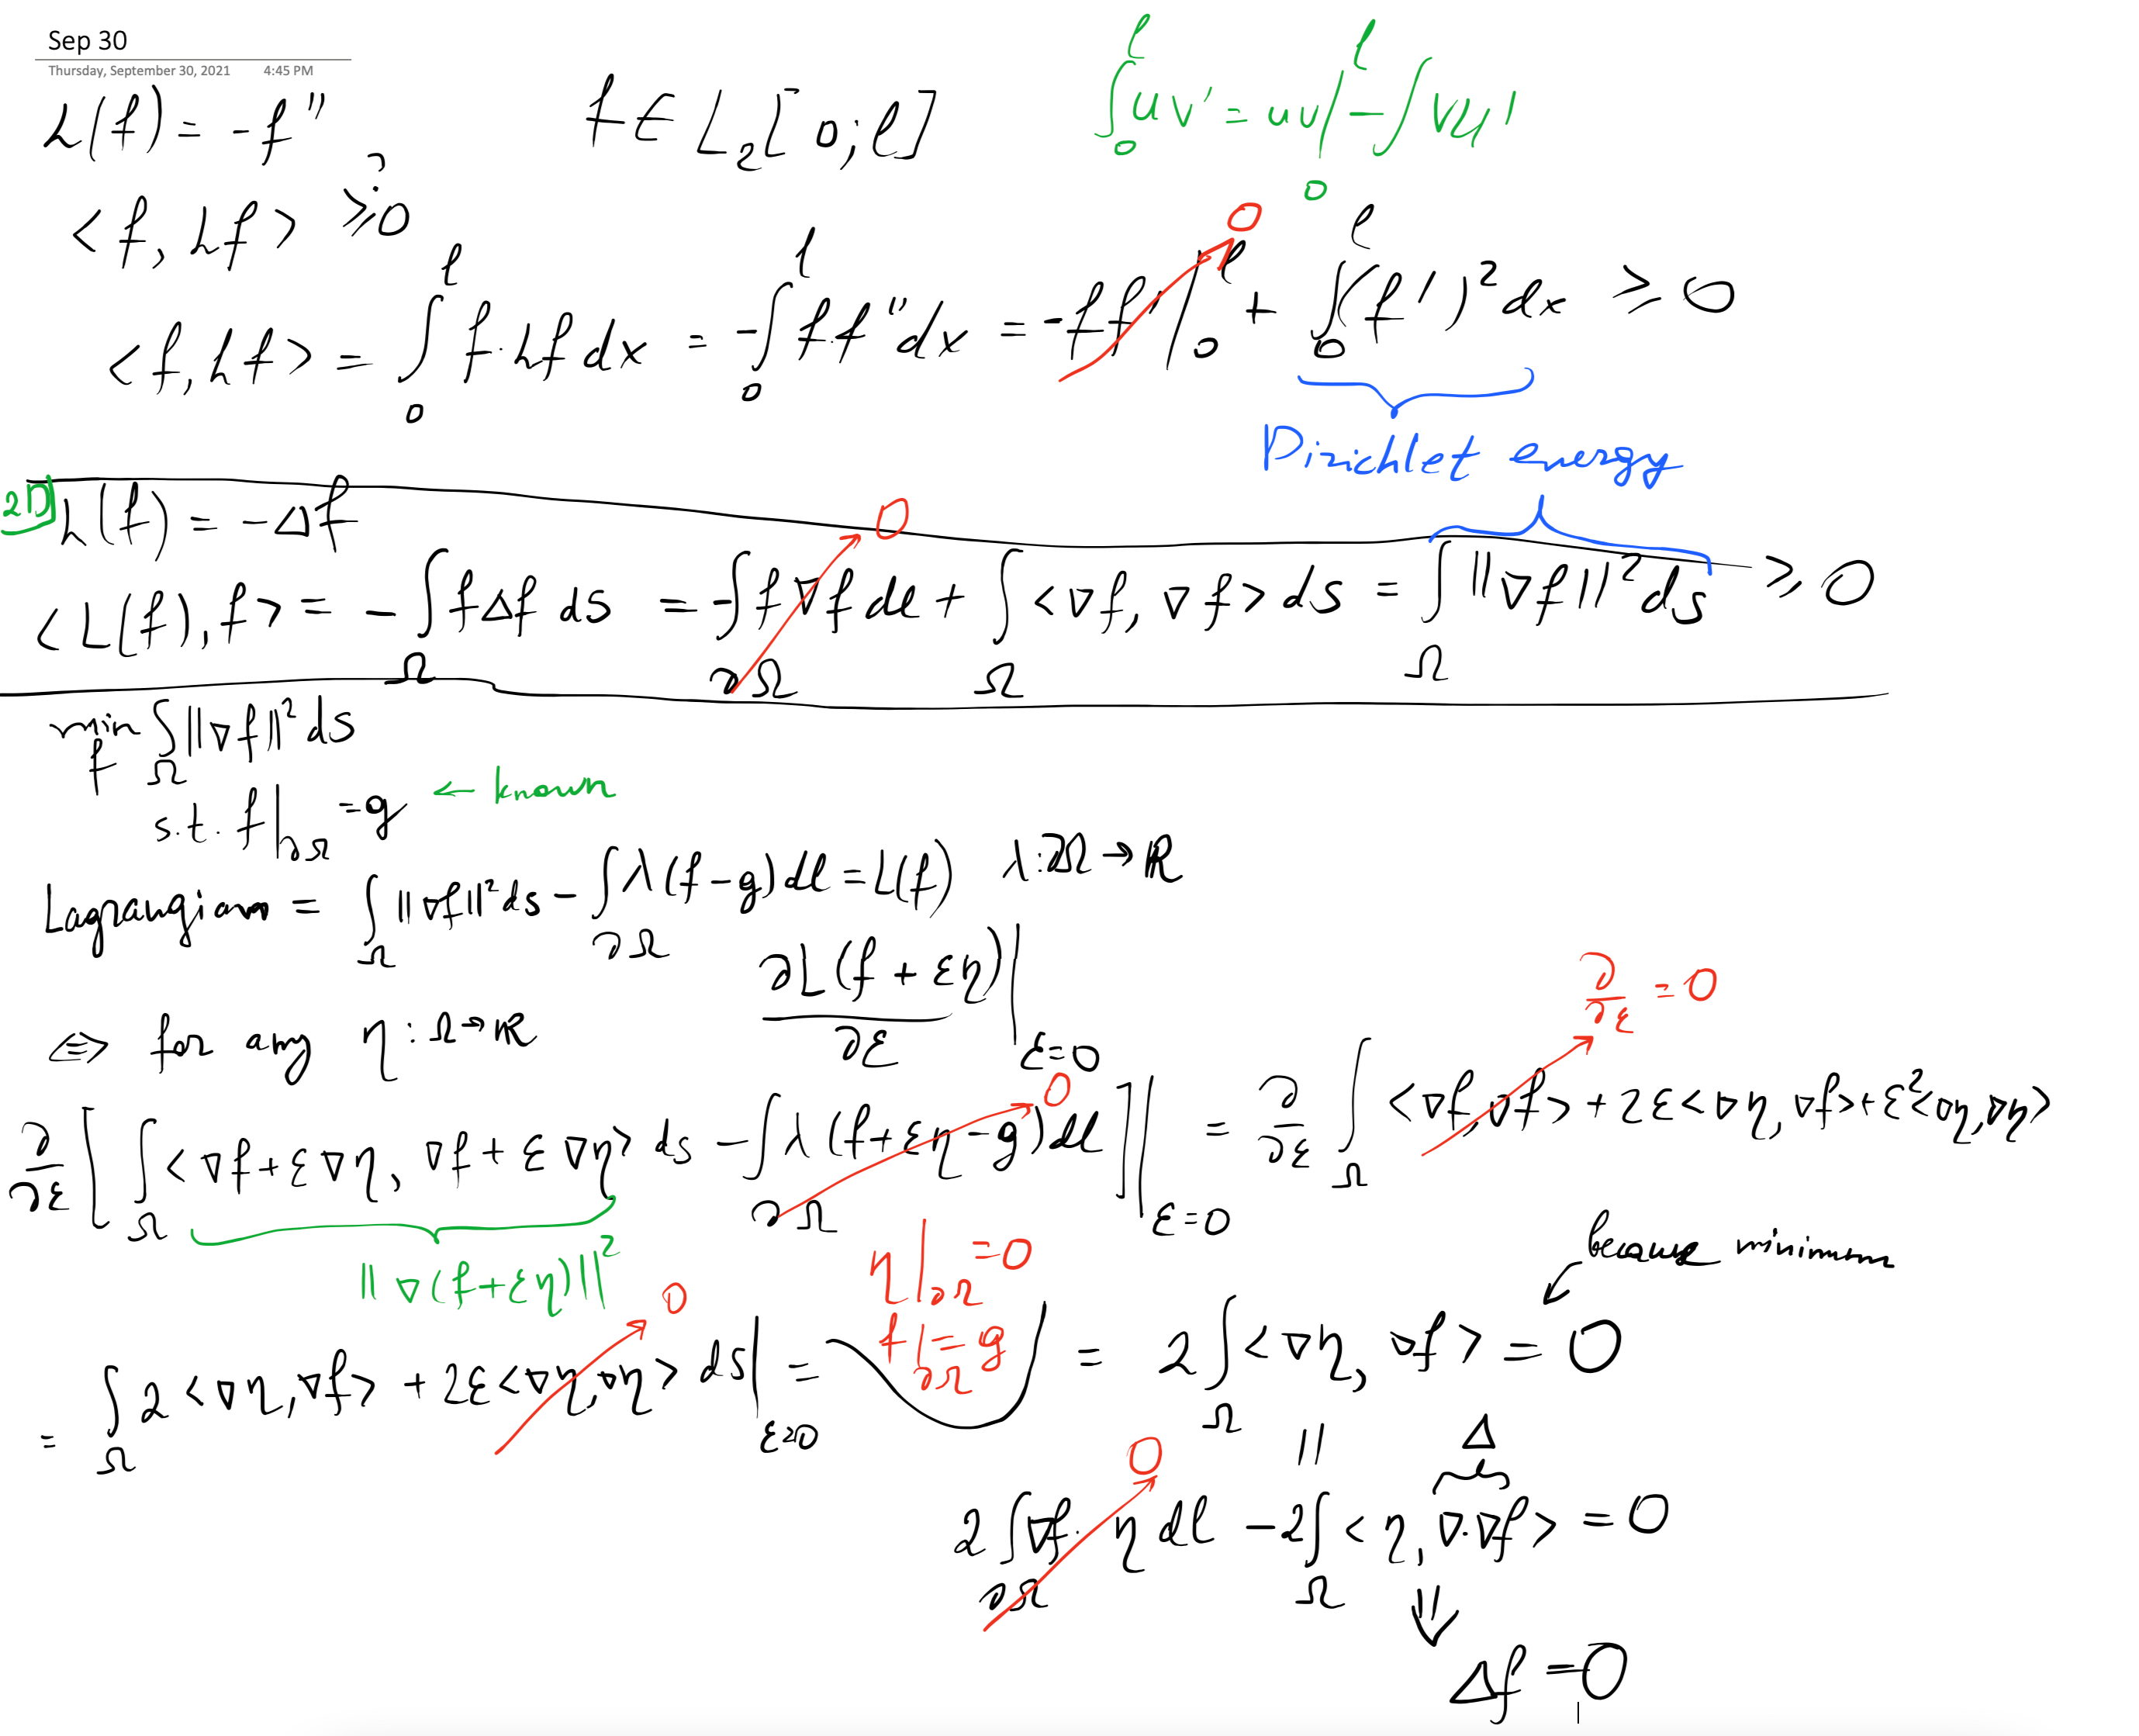 Sep 30
Thursday, September 30, 2021 4:45 PM
L(f) = -f''
f ∈ L₂[0; l]
∫₀ˡ u v' = uv|₀ˡ - ∫ v u'
<f, Lf> ≥ 0 ?
<f, Lf> = ∫₀ˡ f · Lf dx = -∫₀ˡ f · f'' dx = -f f' |₀ˡ + ∫₀ˡ (f')² dx ≥ 0
0
Dirichlet energy
2D
L(f) = -Δf
0
<L(f), f> = - ∫_Ω f Δf ds = -∫_∂Ω f ∇f dl + ∫_Ω <∇f, ∇f> ds = ∫_Ω ||∇f||² ds ≥ 0
min_f ∫_Ω ||∇f||² ds
s.t. f|_∂Ω = g ← known
Lagrangian = ∫_Ω ||∇f||² ds - ∫_∂Ω λ(f-g) dl = L(f) λ: ∂Ω → ℝ
⇔ for any η: Ω → ℝ ∂L(f + εη)/∂ε |_ε=0
∂/∂ε = 0
0
∂/∂ε [ ∫_Ω <∇f + ε∇η, ∇f + ε∇η> ds - ∫_∂Ω λ(f + εη - g) dl ] |_ε=0 = ∂/∂ε ∫_Ω <∇f, ∇f> + 2ε<∇η, ∇f> + ε²<∇η, ∇η>
||∇(f + εη)||²
η|_∂Ω = 0
f|_∂Ω = g
because minimum
0
= ∫_Ω 2<∇η, ∇f> + 2ε<∇η, ∇η> ds |_ε=0 = = 2∫_Ω <∇η, ∇f> = 0
|| Δ
0
2∫_∂Ω ∇f · η dl - 2∫_Ω <η, ∇·∇f> = 0
⇓
Δf = 0